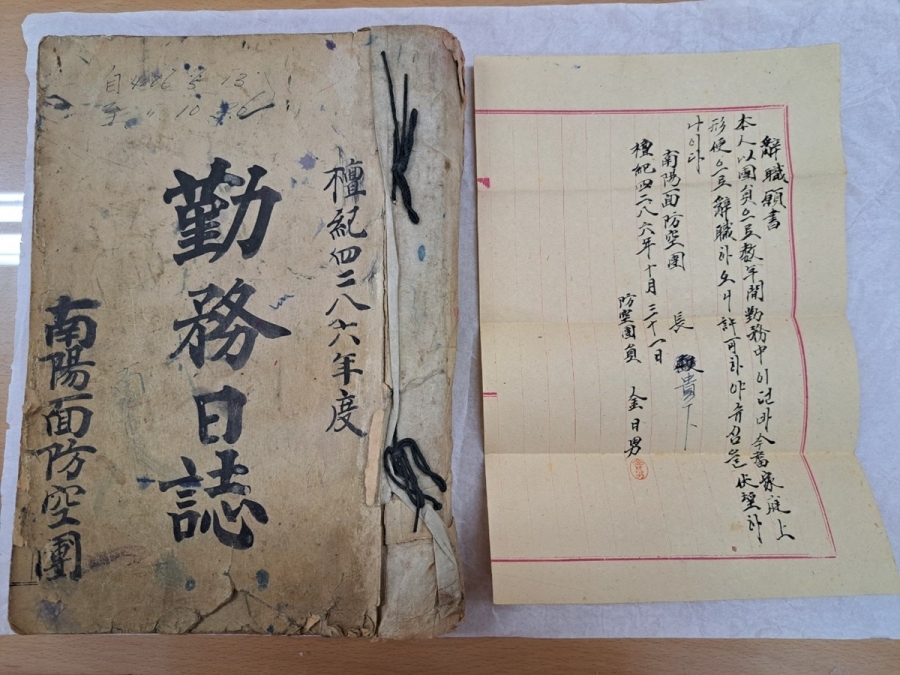 自 4286 5 13
檀紀四二八六年度
勤務日誌
南陽面防空團
解職願書
本人以團員으로数年間勤務中이던바今番家庭上
形便으로解職하오니許可하야주심을伏望하
나이다
南陽面防空團長 貴下
檀紀四二八六年十月三十一日
防空團員 金日男